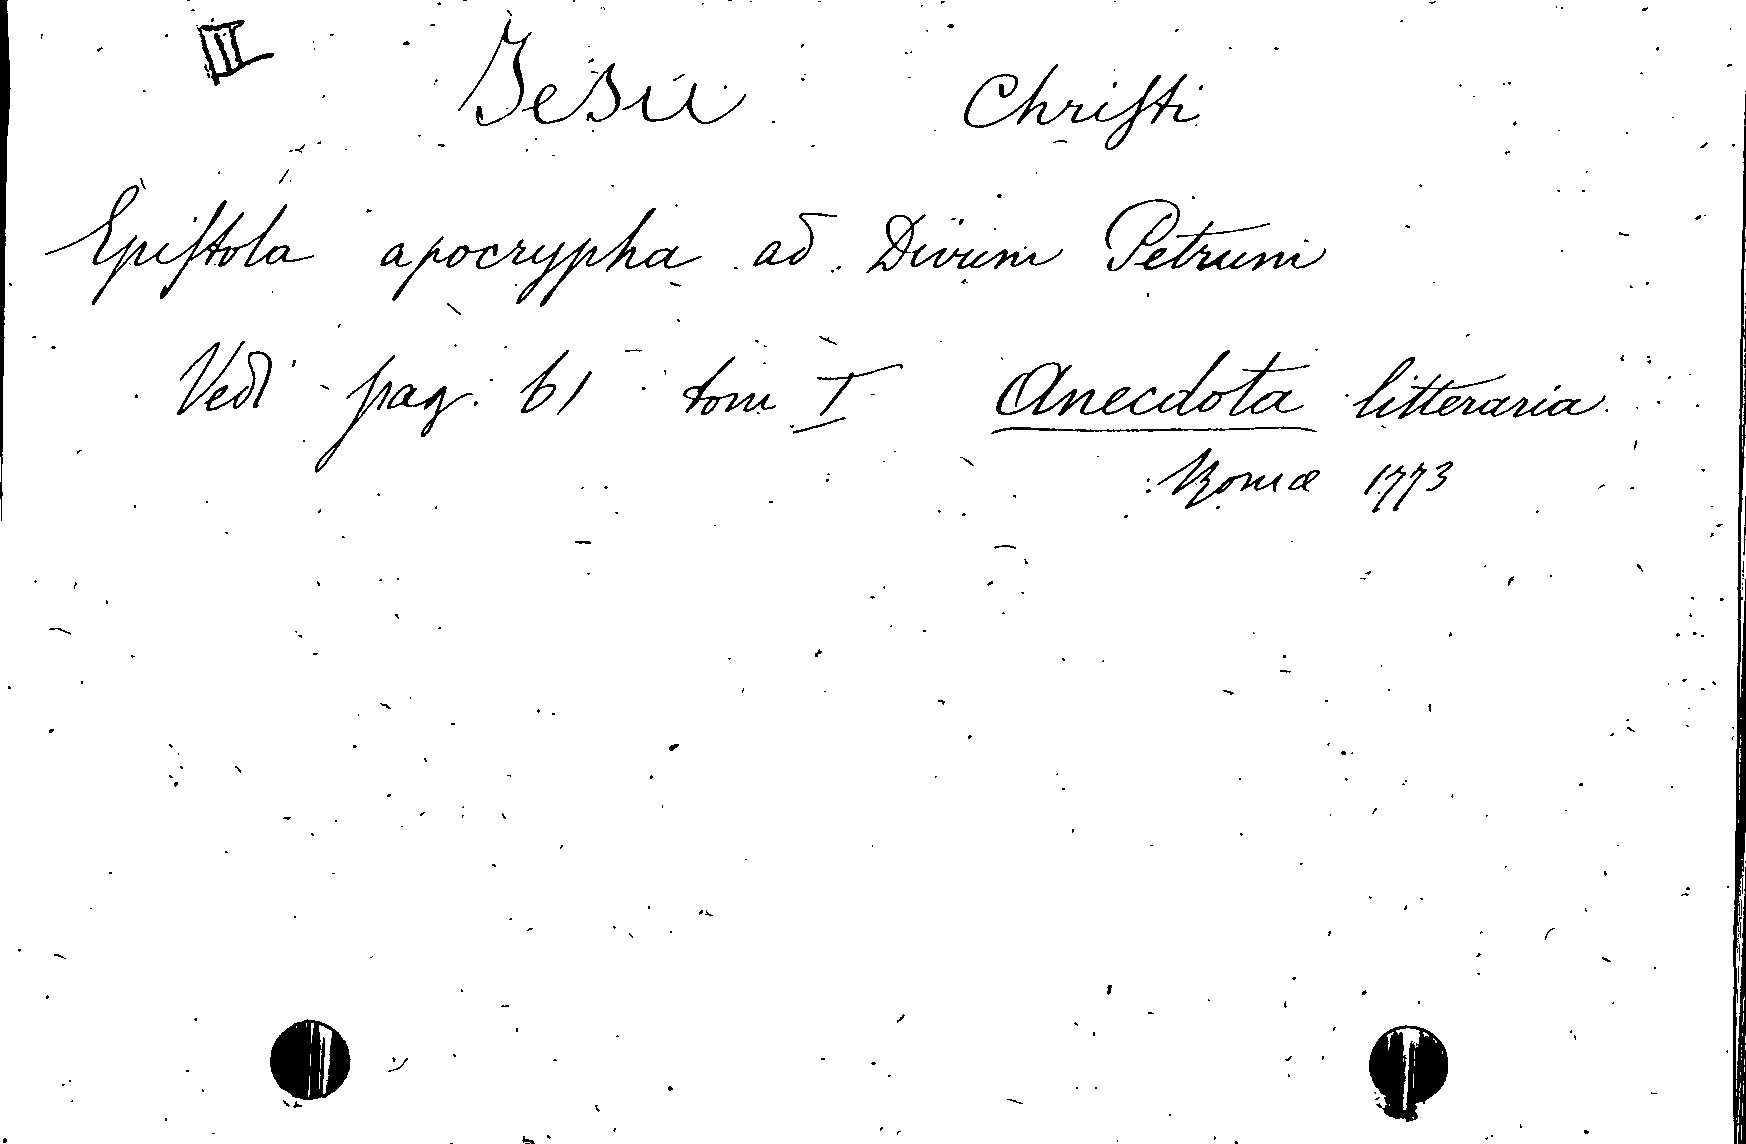 III
Jesu Christi
Epistola apocrypha ad Divum Petrum
Vedi pag. 61 tom I Anecdota litteraria
Romæ 1773